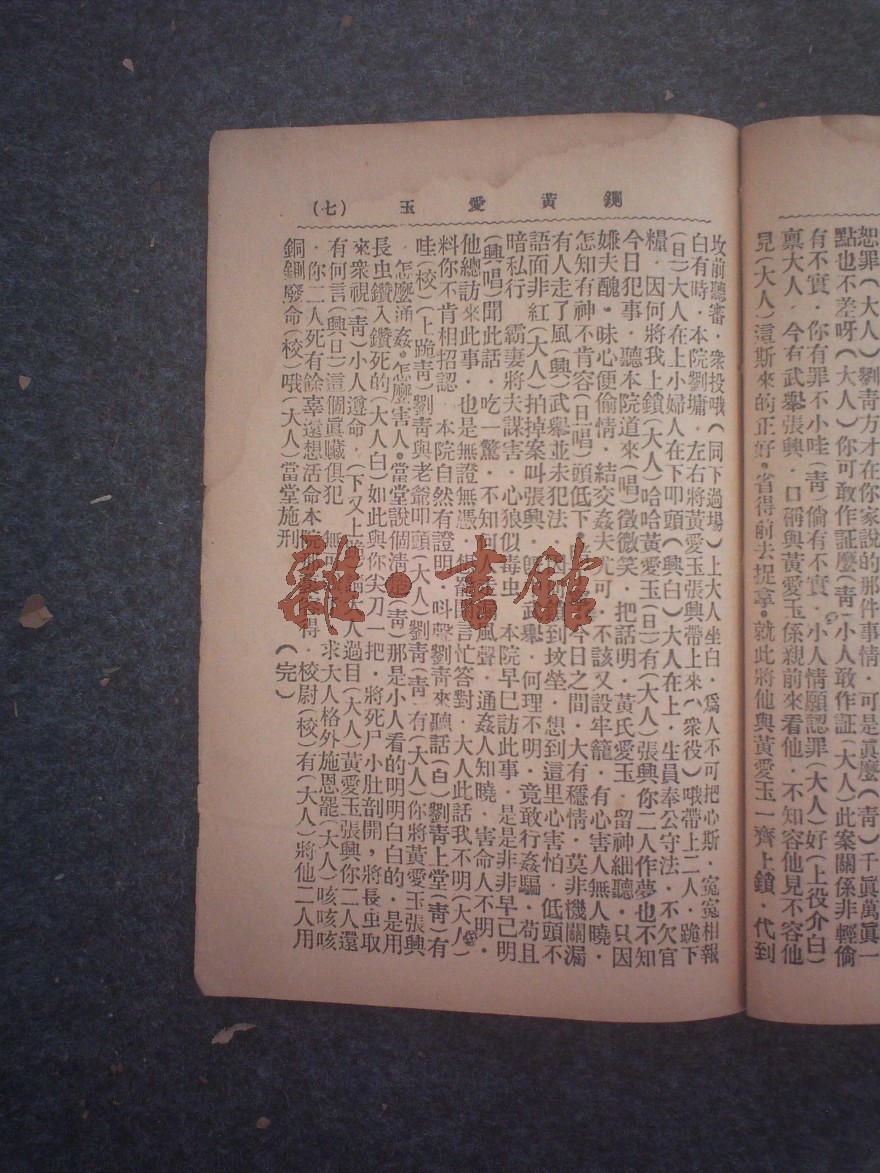 恕罪(大人)劉靑方才在你家說的那件事情·可是眞麼(靑)千眞萬眞一
點也不差呀(大人)你可敢作証麼(靑)小人敢作証(大人)此案關係非輕倘
有不實·你有罪不小哇(靑)倘有不實·小人情願認罪(大人)好(上役介白)
禀大人·今有武舉張興·口稱與黃愛玉係親前來看他·不知容他見不容他
見(大人)這斯來的正好。省得前去捉拿。就此將他與黃愛玉一齊上鎖·代到
鍘黃愛玉 (七)
坟前聽審·衆投哦(同下過場)上大人坐白·爲人不可把心斯·寃寃相報
白有時·本院劉墉·左右將黃愛玉張興帶上來(衆役)哦帶上二人·跪下
(旦)大人在上小婦人在下叩頭(興白)大人在上·生員奉公守法·不欠官
糧·因何將我上鎖(大人)哈哈黃愛玉(旦)有(大人)張興你二人作夢也不知
今日犯事·聽本院道來(唱)微微笑·把話明·黃氏愛玉·留神細聽·只因
嫌夫醜。昧心便偷情·結交姦夫尤可·不該又設牢籠·有心害人無人曉·
怎知有神不肯容(旦唱)頭低下·今日之間·大有穩情·莫非機關漏
有人走了風(興)武舉並未犯法·到坟塋·想到這里心害怕·低頭不
語面非紅(大人)拍掉案叫張興·武舉·何理不明·竟敢行姦騙·苟且
暗私行·霸妻將夫謀害·心狼似毒虫·本院早已訪此事·是是非非早己明
(興唱)聞此話·吃一驚·不知何人走風聲·通姦人知曉·害命人不明·
他總訪來此事·也是無證無憑·想罷開言忙答對·大人此話我不明(大人)
料你不肯相招認·本院自然有證明·呌聲劉靑來聽話(白)劉靑上堂(靑)有
哇(校)(上跪靑)劉靑與老爺叩頭(大人)劉靑(靑)有(大人)你將黃愛玉張興
·怎麼通姦。怎麼害人。當堂說個淸(靑)那是小人看的明明白白的·是用
長虫鑽入鑽死的(大人白)如此與你尖刀一把·將死尸小肚剖開，將長虫取
來衆視(靑)小人遵命·(下又上)大人過目(大人)黃愛玉張興你二人還
有何言(興旦)這個眞贓俱犯·無求大人格外施恩罷(大人)咳咳咳
·你二人死有餘辜還想活命本院得·校尉(校)有(大人)將他二人用
銅鍘廢命(校)哦(大人)當堂施刑 (完)
雜·書館